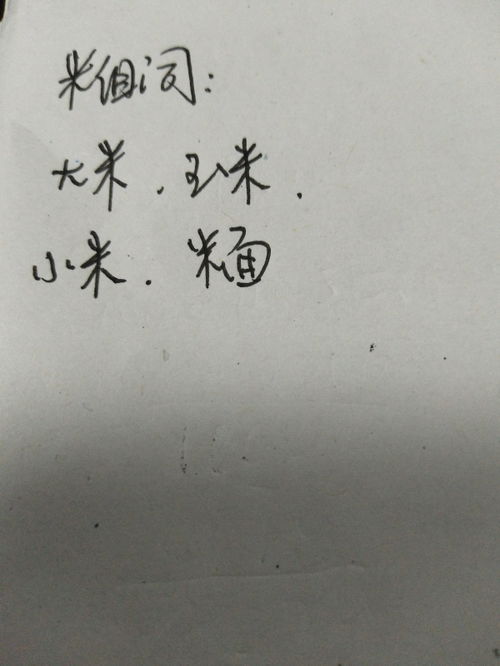 米组词:
大米.玉米.
小米.米面